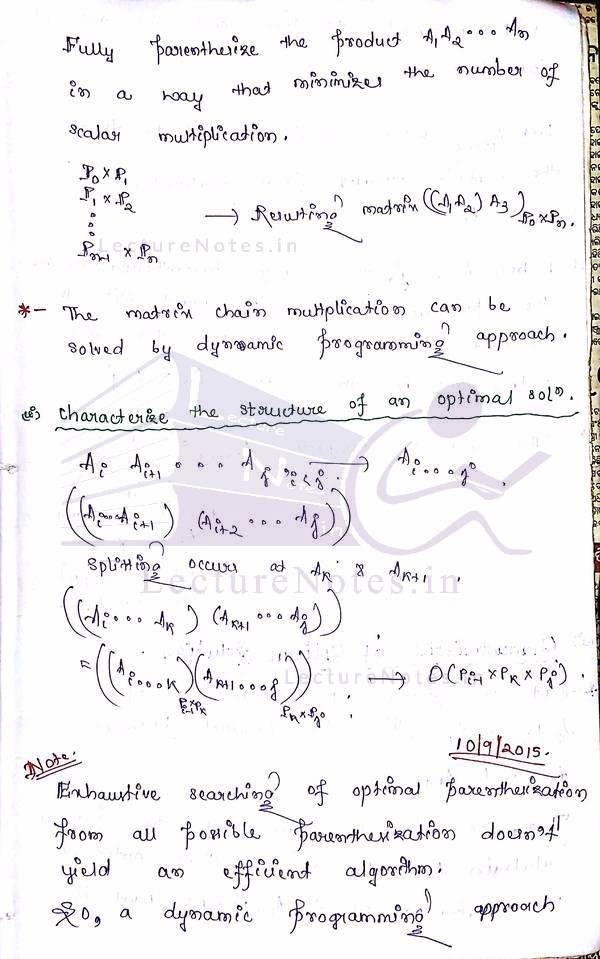 Fully parenthesize the product A₁A₂...Aₙ
in a way that minimizes the number of
scalar multiplication.
P₀ × P₁
P₁ × P₂
⋮
→ Resulting matrix ((A₁A₂) A₃) P₀ × Pₙ.
LectureNotes.in
Pₙ₋₁ × Pₙ
*- The matrix chain multiplication can be
solved by dynamic programming approach.
Characterize the structure of an optimal solⁿ.
Aᵢ Aᵢ₊₁ ... Aⱼ, i<j. → Aᵢ...ⱼ.
((Aᵢ...Aᵢ₊₁) (Aᵢ₊₂ ... Aⱼ))
Splitting occurs at Aₖ & Aₖ₊₁.
LectureNotes.in
((Aᵢ...Aₖ) (Aₖ₊₁...Aⱼ))
= ((Aᵢ...ₖ)(Aₖ₊₁...ⱼ)) → O(Pᵢ₋₁ × Pₖ × Pⱼ).
Pᵢ₋₁ × Pₖ Pₖ × Pⱼ.
10/9/2015.
Note:
Exhaustive searching of optimal parenthesization
from all possible parenthesization doesn't
yield an efficient algorithm.
So, a dynamic programming approach